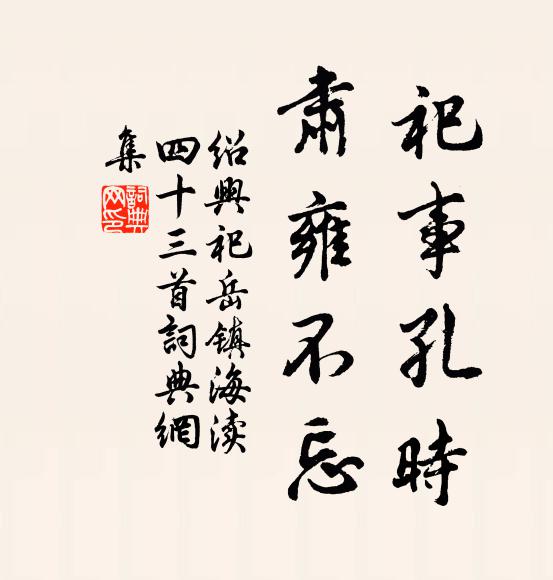 祀事孔時
肅雍不忘
绍興祀岳鎮海渎
四十三首詞典網
集
詞典
网印